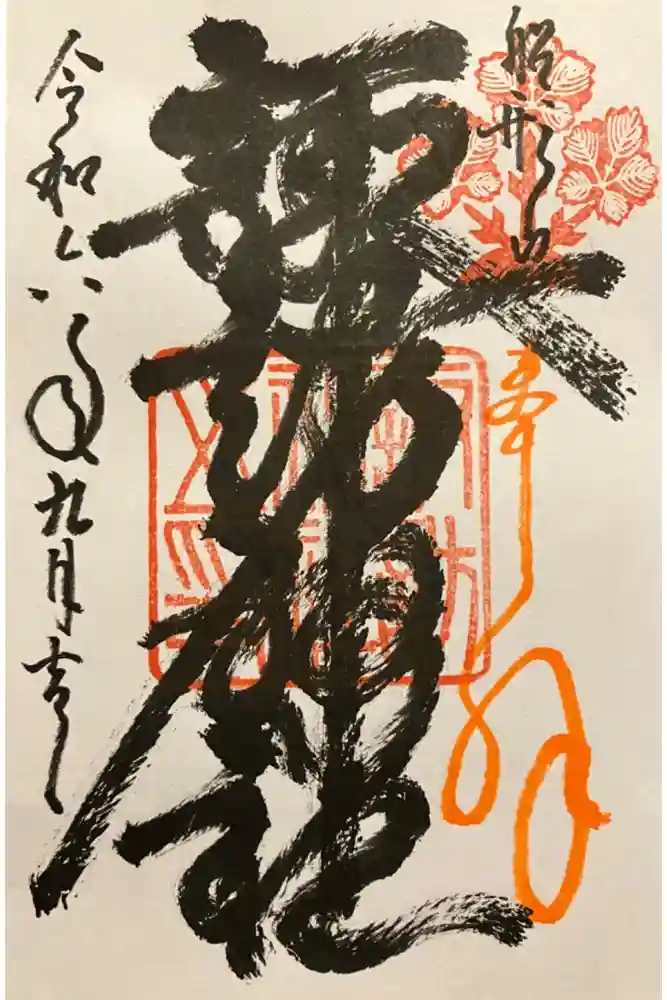 船形山
奉拝
諏訪神社
令和六年九月吉日